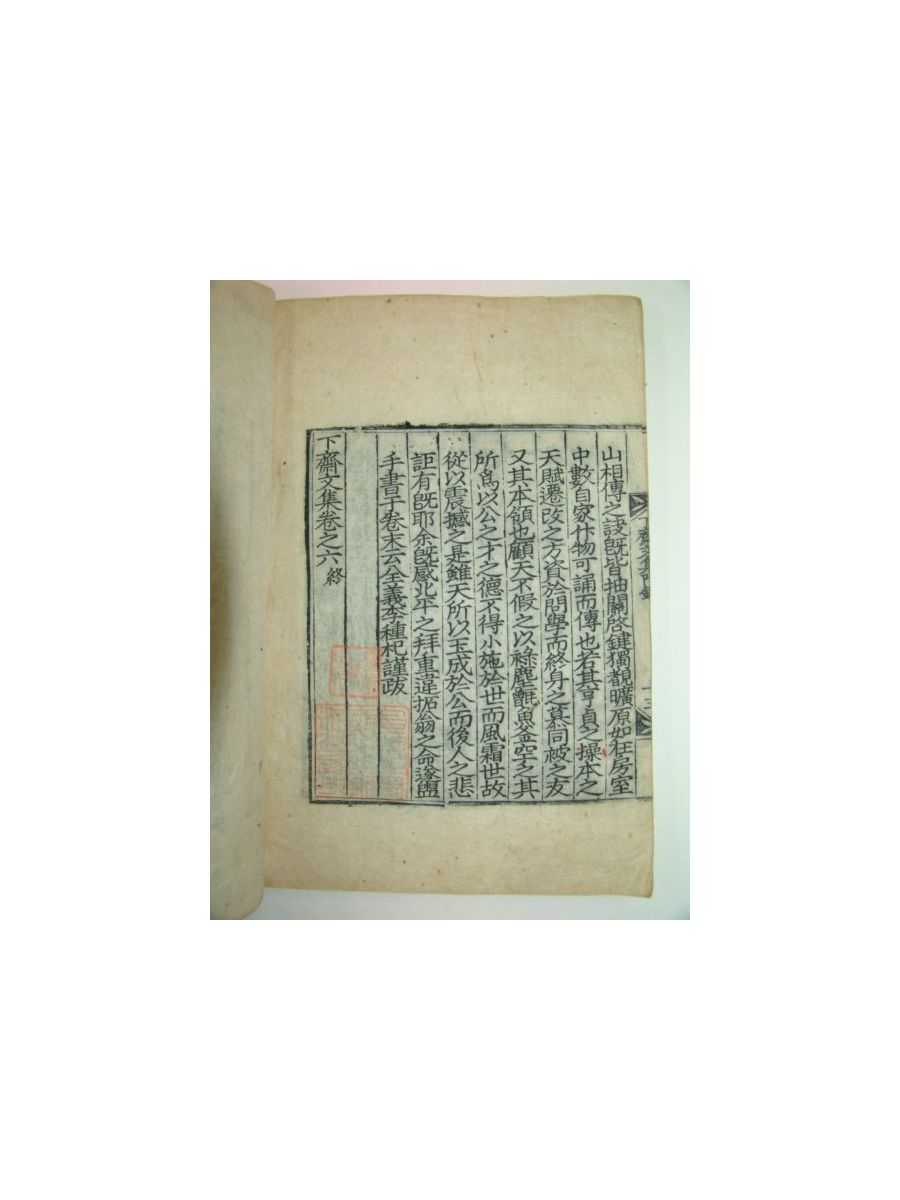 山相傳之訣旣皆抽關啓鍵獨觀曠原如在房室
中數自家什物可誦而傳也若其亨貞之操本之
天賦遷改之方資於問學而終身之慕同被之友
又其本領也顧天不假之以祿塵甑魚釜空之其
所爲以公之才之德不得小施於世而風霜世故
從以震撼之是雖天所以玉成於公而後人之悲
詎有旣耶余旣感北平之拜重違拓翁之命遂盥
手書于卷末云全義李種杞謹跋
下齋文集卷之六 終